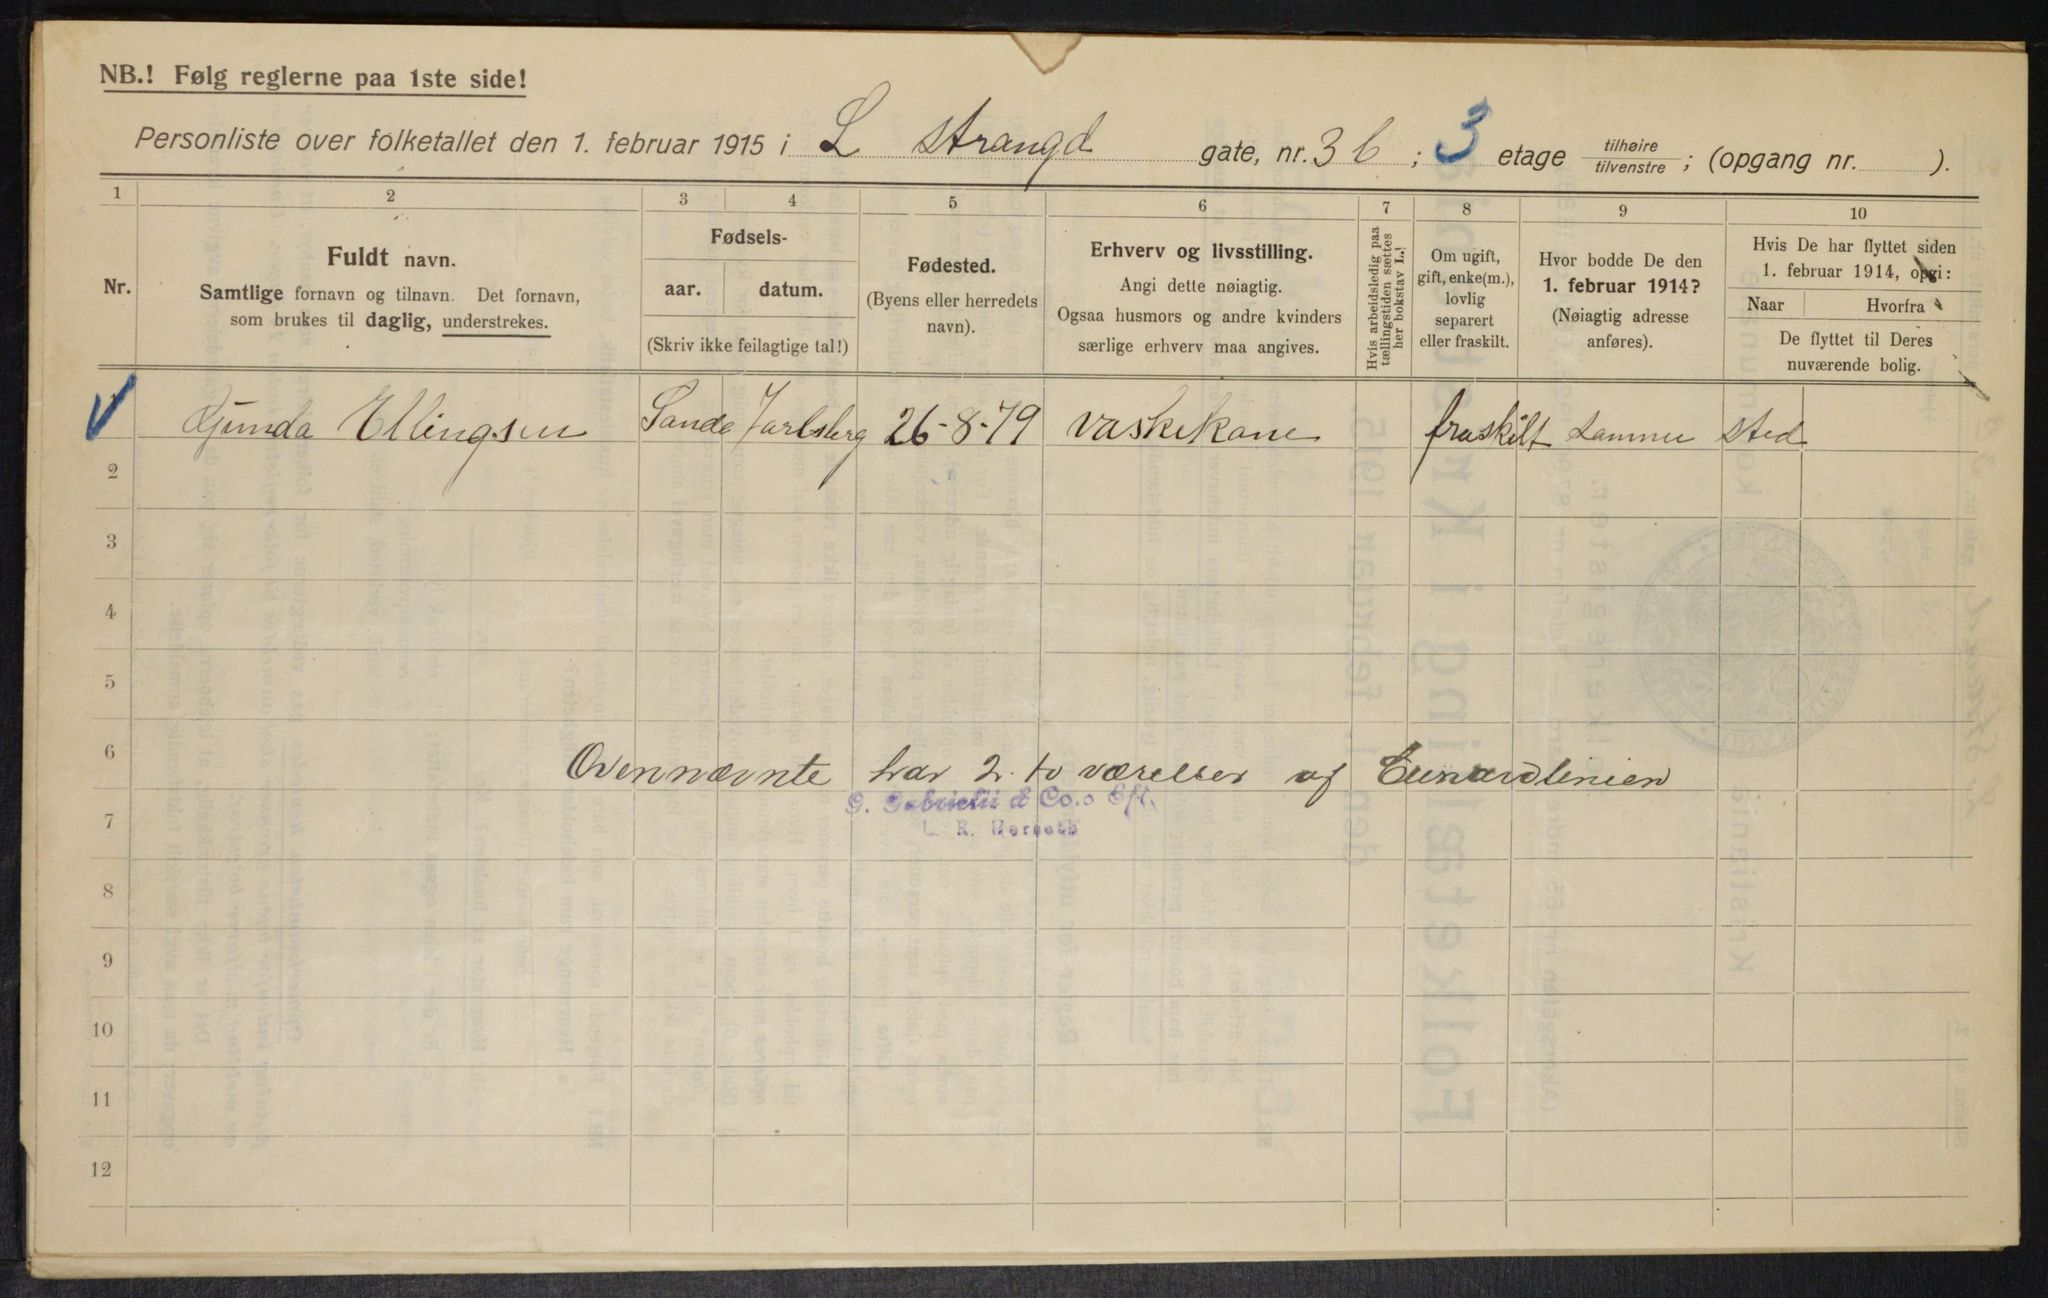 NB.! Følg reglerne paa 1ste side!
Personliste over folketallet den 1. februar 1915 i L Strangd gate, nr. 36 ; 3 etage tilhøire tilvenstre ; (opgang nr. ).
1 2 3 4 5 6 7 8 9 10
Nr.
Fuldt navn.
Samtlige fornavn og tilnavn. Det fornavn,
som brukes til daglig, understrekes.
Fødsels-
aar. datum.
(Skriv ikke feilagtige tal!)
Fødested.
(Byens eller herredets
navn).
Erhverv og livsstilling.
Angi dette nøiagtig.
Ogsaa husmors og andre kvinders
særlige erhverv maa angives.
Hvis arbeidsledig paa
tællingstiden sættes
her bokstav L.!
Om ugift,
gift, enke(m.),
lovlig
separert
eller fraskilt.
Hvor bodde De den
1. februar 1914?
(Nøiagtig adresse
anføres).
Hvis De har flyttet siden
1. februar 1914, opgi:
Naar Hvorfra
De flyttet til Deres
nuværende bolig.
Gunda Ellingsen Sande Jarlsberg 26-8-79 vaskekone fraskilt samme sted
2
3
4
5
6
Ovennævnte har 2. to værelser af Cunardlinien
G. Gabrielii & Co.s Eft.
7
8
9
10
11
12